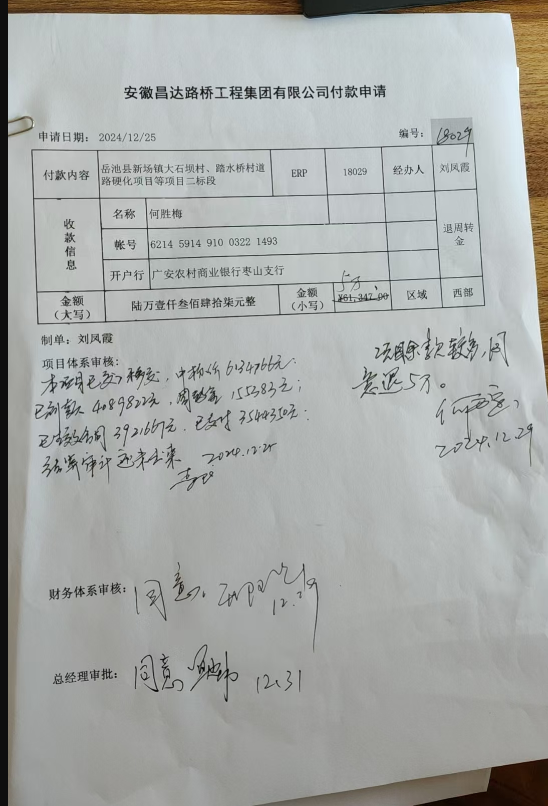 安徽昌达路桥工程集团有限公司付款申请
申请日期： 2024/12/25
编号： 18029
付款内容 岳池县新场镇大石坝村、踏水桥村道路硬化项目等项目二标段 ERP 18029 经办人 刘凤霞
收款信息 名称 何胜梅 退周转金
帐号 6214 5914 910 0322 1493
开户行 广安农村商业银行枣山支行
5万
金额（大写） 陆万壹仟叁佰肆拾柒元整 金额（小写） ¥61,347.00 区域 西部
制单：刘凤霞
项目体系审核：
本项目已交工验收，中标价6134766元；
已到款4089822元，周转金155283元；
已生效合同3921667元，已支付3544350元；
结算审计还未出来 2024.12.25
项目余款较多，同
意退5万。
2024.12.29
财务体系审核： 同意。 12.29
总经理审批： 同意 12.31